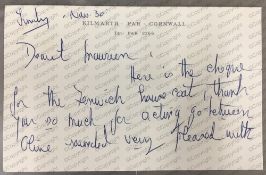 Nov. 30
KILMARTH PAR CORNWALL
Dearest Maureen,
Here is the cheque
for the Fenwick house-coat, & thank
you so much for acting go-between
Olive sounded very pleased with